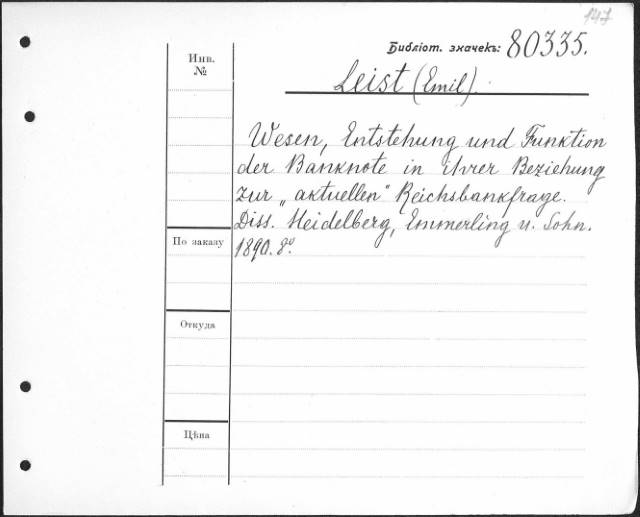 147
Библіот. значекъ: 80335.
Инв.
№
Leist (Emil)
Wesen, Entstehung und Funktion
der Banknote in ihrer Beziehung
zur „aktuellen“ Reichsbankfrage.
Diss. Heidelberg, Emmerling u. Sohn.
1890. 8º.
По заказу
Откуда
Цѣна